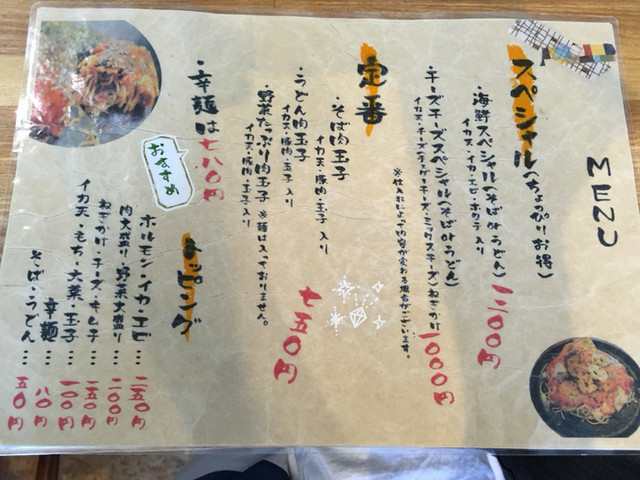 MENU
スペシャル(ちょっぴりお得)
・海鮮スペシャル(そば or うどん) 一二〇〇円
イカ天・イカ・エビ・ホタテ入り
・チーズチーズスペシャル(そば or うどん) 一〇〇〇円
イカ天・チーズ・ミックスチーズ)ねぎかけ
※仕入れによって内容が変わる場合がございます。
定番
・そば肉玉子
イカ天・豚肉・玉子入り
・うどん肉玉子
イカ天・豚肉・玉子入り
・野菜たっぷり肉玉子 ※麺は入っておりません。
イカ天・豚肉・玉子入り
七五〇円
・辛麺は七八〇円
おすすめ
トッピング
ホルモン・イカ・エビ… 二五〇円
肉大盛り・野菜大盛り… 二〇〇円
ねぎかけ・チーズ・キムチ… 一五〇円
イカ天・もち・大葉・玉子… 一〇〇円
辛麺… 八〇円
そば・うどん… 五〇円